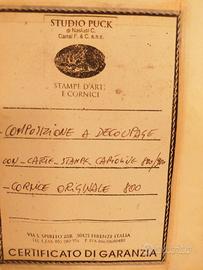 STUDIO PUCK
di Nasiuti C.
Canal F. & C. s.n.c.
STAMPE D'ARTE
E CORNICI
- COMPOSIZIONE A DECOUPAGE
CON - CARTE - STAMPE CARTOLINE 800/900
- CORNICE ORIGINALE 800
VIA S. SPIRITO 50125 FIRENZE ITALIA
CERTIFICATO DI GARANZIA